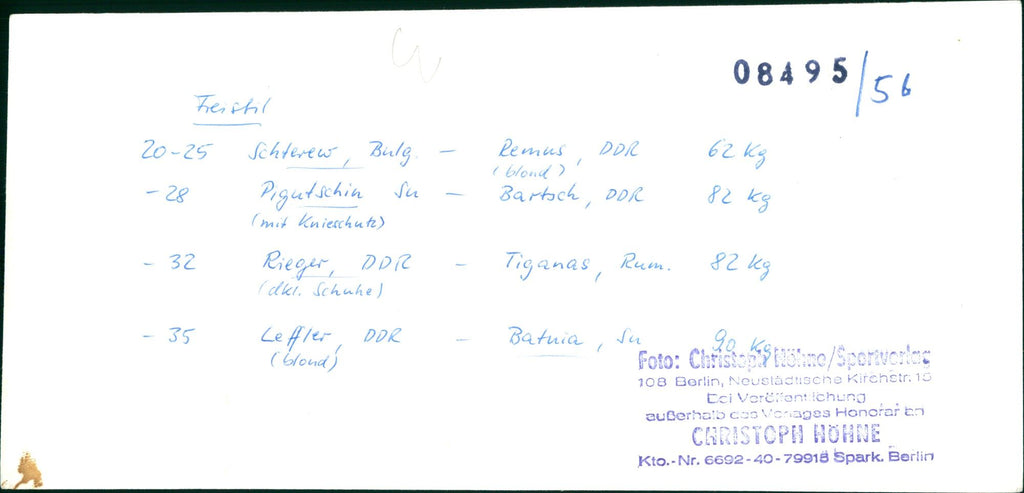 08495/56
Freistil
20-25 Schterew, Bulg. - Remus, DDR 62 kg
(blond)
-28 Pigutschin Su - Bartsch, DDR 82 kg
(mit Knieschutz)
-32 Rieger, DDR - Tiganas, Rum. 82 kg
(dkl. Schuhe)
-35 Leffler, DDR - Batnia, Su 90 kg
(blond)
Foto: Christoph Höhne/Sportverlag
108 Berlin, Neustädtische Kirchstr. 15
Bei Veröffentlichung
außerhalb des Verlages Honorar an
CHRISTOPH HÖHNE
Kto.-Nr. 6692-40-79918 Spark. Berlin